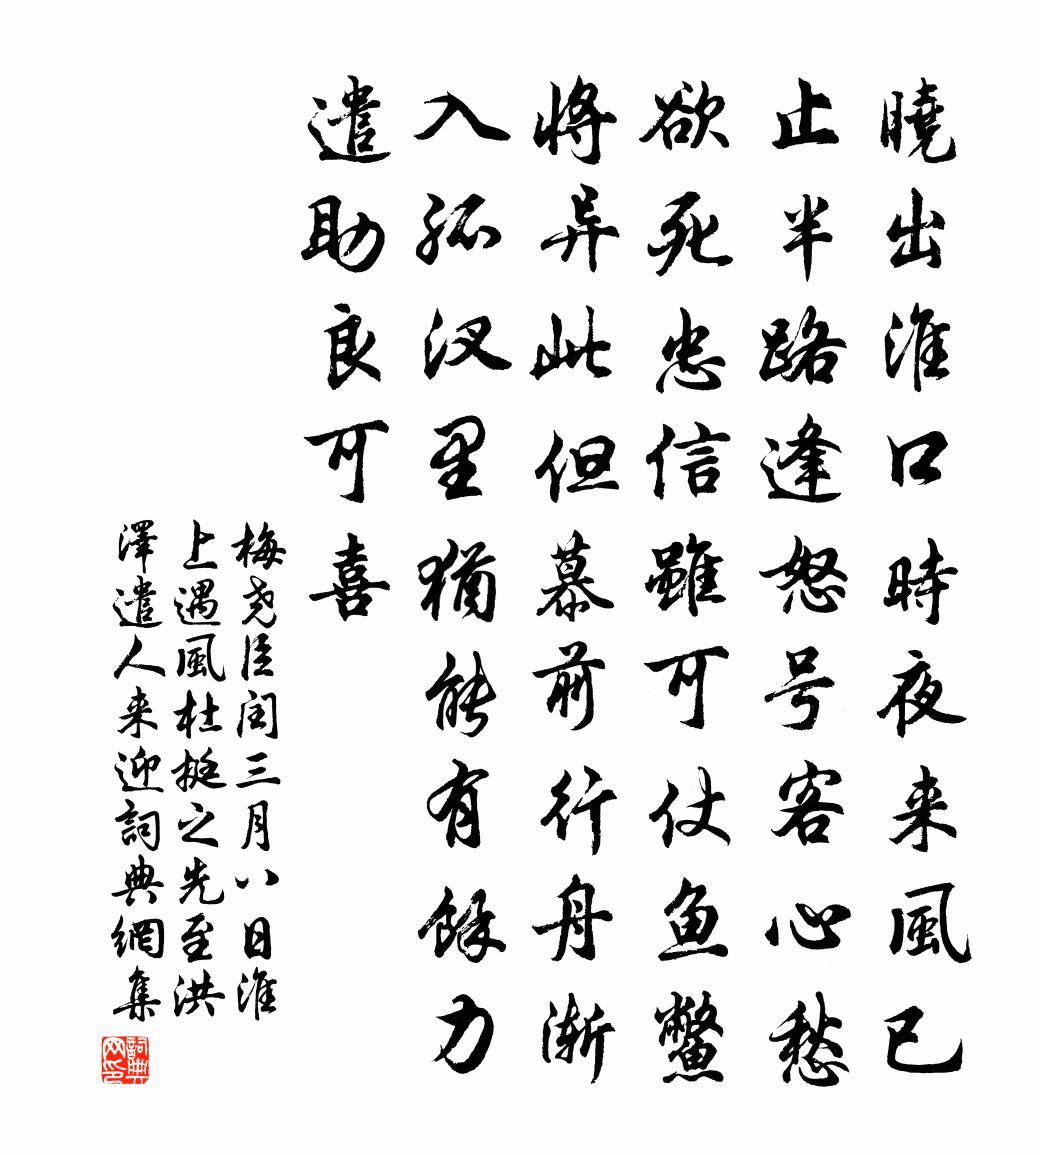 曉出淮口時夜来風已
止半路逢怒号客心愁
欲死忠信雖可仗鱼鱉
將异此但慕前行舟漸
入孤汊里猶能有餘力
遣助良可喜
梅尧臣闰三月八日淮
上遇風杜挺之先至洪
澤遣人来迎詞典網集
詞典
网印